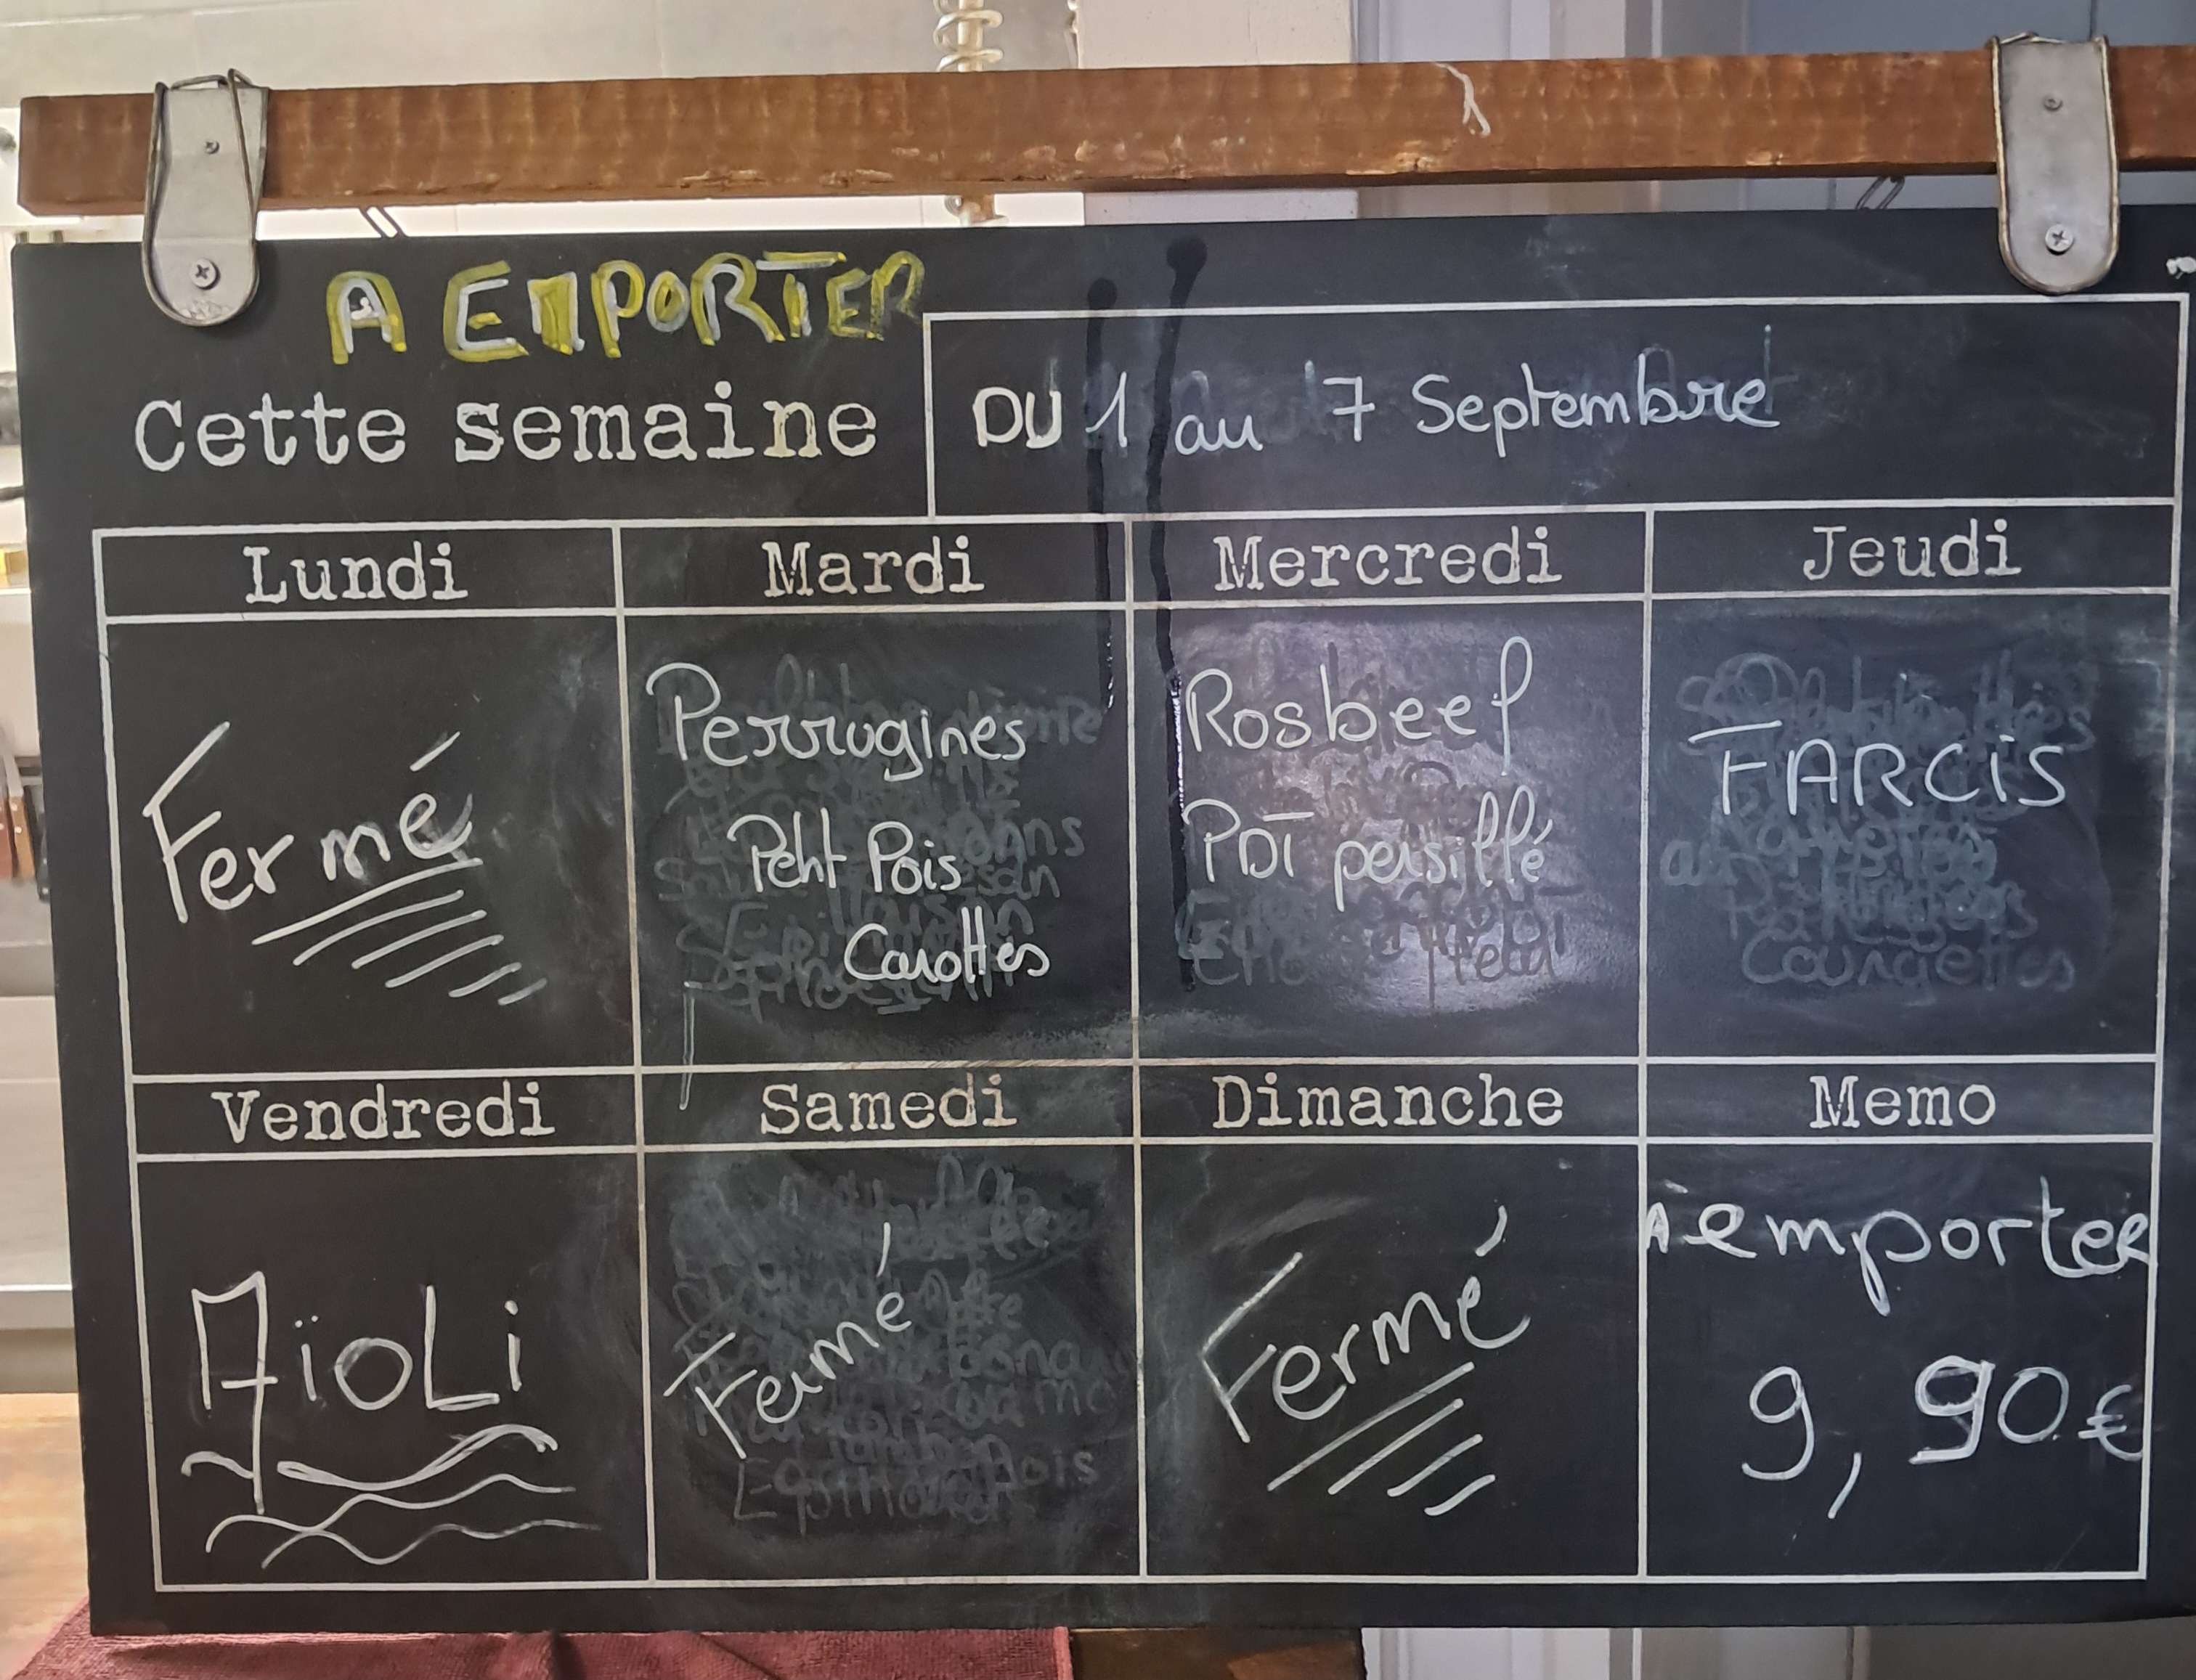 A EMPORTER
Cette semaine
DU 1 au 7 Septembre
Lundi
Mardi
Mercredi
Jeudi
Fermé
Perrugines
Petit Pois
Carottes
Rosbeef
PDT persillé
FARCiS
Vendredi
Samedi
Dimanche
Memo
AïoLi
Fermé
Fermé
A emporter
9,90€